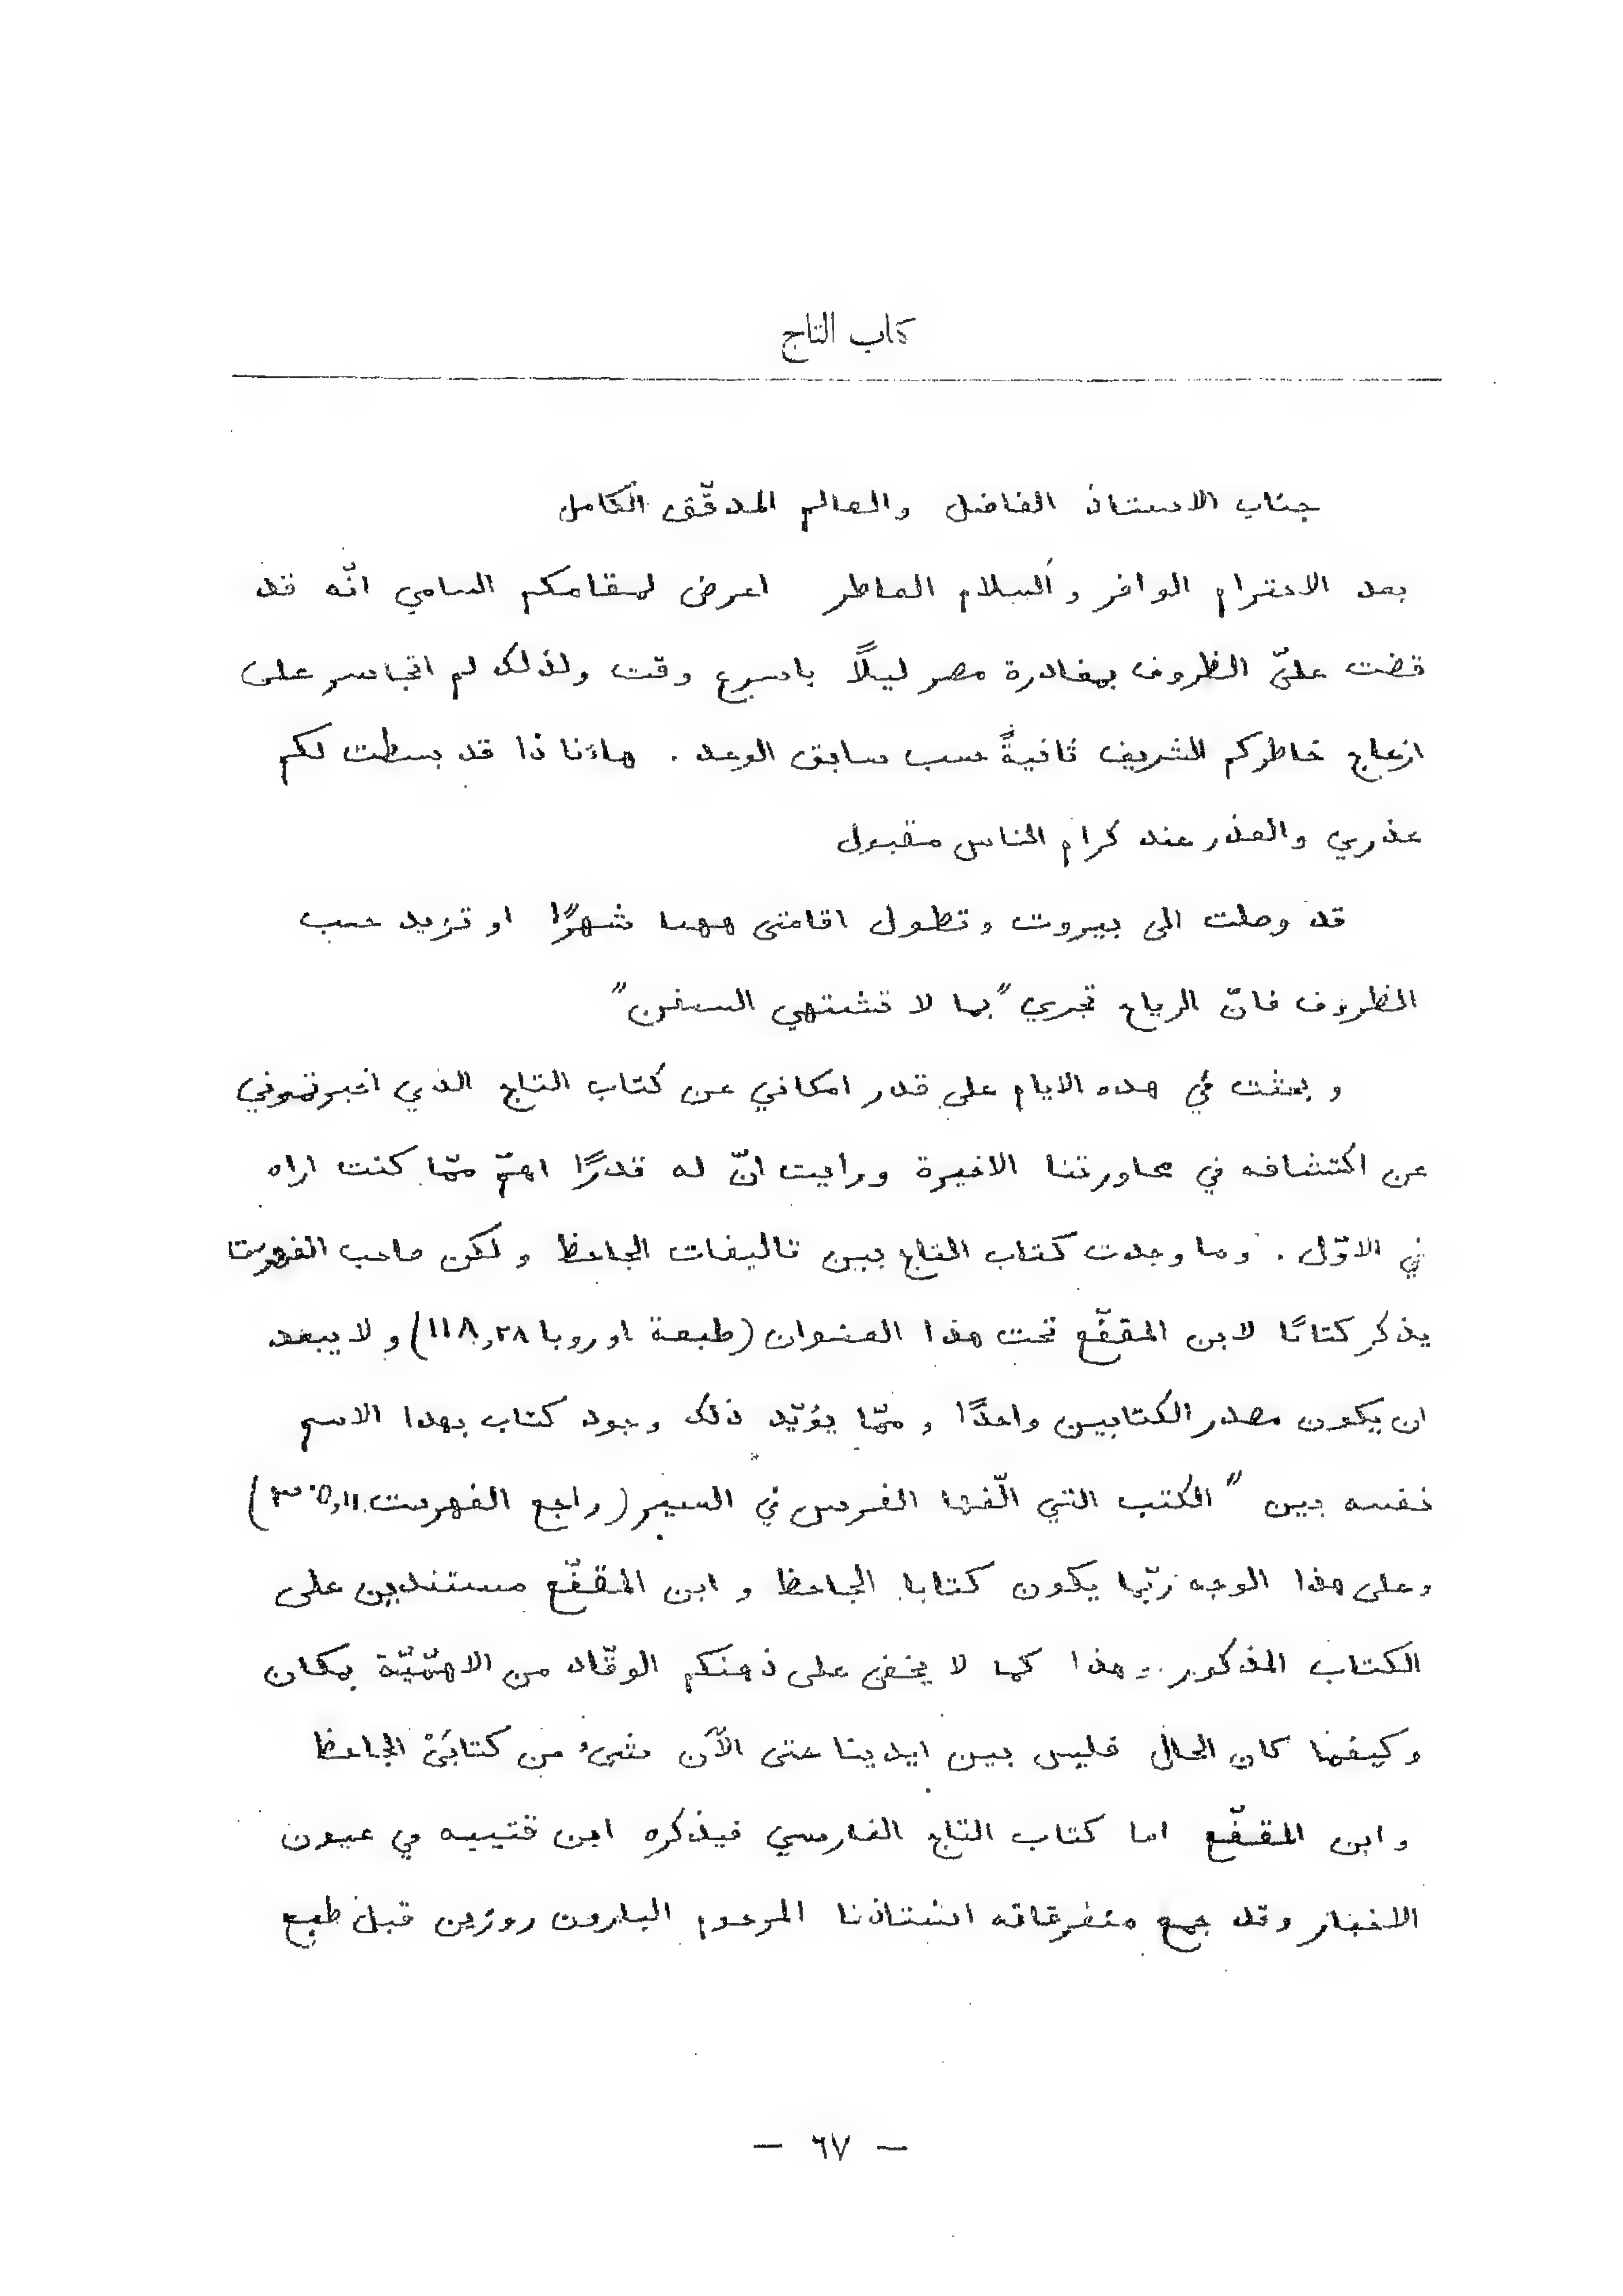 كتاب التاج
جناب الاستاذ الفاضل والعالم المدقّق الكامل
بعد الاحترام الوافر والسلام العاطر اعرض لمقامكم السامي انّه قد
قضت عليّ الظروف بمغادرة مصر ليلًا باسرع وقت ولذلك لم اتجاسر على
ازعاج خاطركم الشريف ثانيةً حسب سابق الوعد . هاءنا ذا قد بسطت لكم
عذري والعذر عند كرام الناس مقبول
قد وصلت الى بيروت وتطول اقامتى ههنا شهرًا او تزيد حسب
الظروف فانّ الرياح تجري "بما لا تشتهي السفن"
وبحثت في هذه الايام على قدر امكاني عن كتاب التاج الذي اخبرتموني
عن اكتشافه في محاورتنا الاخيرة ورايت انّ له قدرًا اهمّ ممّا كنت اراه
في الاوّل . وما وجدت كتاب التاج بين تاليفات الجاحظ ولكن صاحب الفهرست
يذكر كتابًا لابن المقفّع تحت هذا العنوان (طبعة اوروبا ١١٨,٢٨) ولا يبعد
ان يكون مصدر الكتابين واحدًا وممّا يؤيّد ذلك وجود كتاب بهذا الاسم
نفسه بين " الكتب التي الّفها الفرس في السير (راجع الفهرست ٣٠٥,١١)
وعلى هذا الوجه ربّما يكون كتابا الجاحظ وابن المقفّع مستندين على
الكتاب المذكور وهذا كما لا يخفى على ذهنكم الوقّاد من الاهمّيّة بمكان
وكيفما كان الحال فليس بين ايدينا حتى الآن شىء من كتابَيْ الجاحظ
وابن المقفّع اما كتاب التاج الفارسي فيذكره ابن قتيبه في عيون
الاخبار وقد جمع متفرقاته استاذنا المرحوم البارون روزين قبل طبع
— ٦٧ —